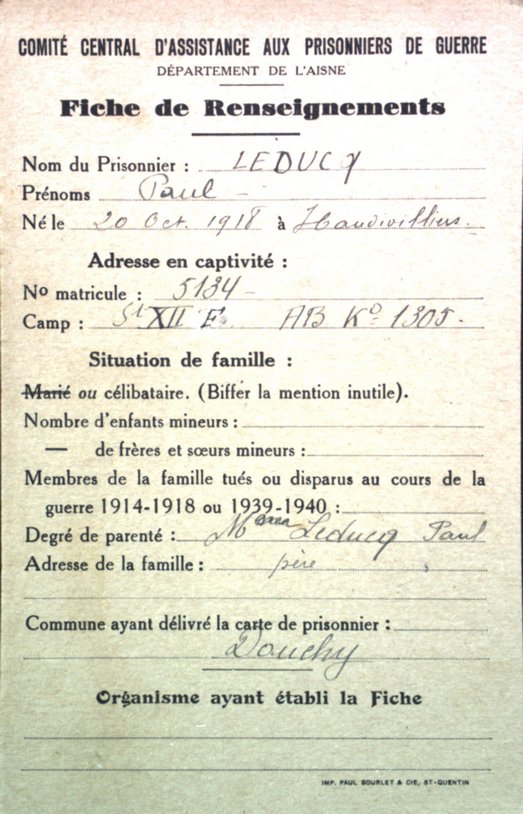 COMITÉ CENTRAL D'ASSISTANCE AUX PRISONNIERS DE GUERRE
DÉPARTEMENT DE L'AISNE
Fiche de Renseignements
Nom du Prisonnier : LEDUCQ
Prénoms Paul
Né le 20 Oct. 1918 à Handivilliers
Adresse en captivité :
No matricule : 5134
Camp : St XII E AB Ko 1305
Situation de famille :
Marié ou célibataire. (Biffer la mention inutile).
Nombre d'enfants mineurs :
— de frères et sœurs mineurs :
Membres de la famille tués ou disparus au cours de la
guerre 1914-1918 ou 1939-1940 :
Degré de parenté : Leducq Paul
Adresse de la famille : père
Commune ayant délivré la carte de prisonnier :
Douchy
Organisme ayant établi la Fiche
IMP. PAUL BOURLET & CIE, ST-QUENTIN